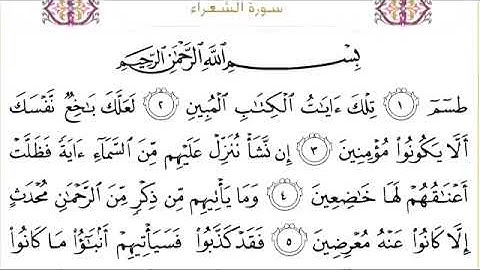 سورة الشعراء
بِسْمِ ٱللَّهِ ٱلرَّحْمَٰنِ ٱلرَّحِيمِ
طسٓمٓ ١ تِلْكَ ءَايَٰتُ ٱلْكِتَٰبِ ٱلْمُبِينِ ٢ لَعَلَّكَ بَٰخِعٌ نَّفْسَكَ
أَلَّا يَكُونُوا۟ مُؤْمِنِينَ ٣ إِن نَّشَأْ نُنَزِّلْ عَلَيْهِم مِّنَ ٱلسَّمَآءِ ءَايَةً فَظَلَّتْ
أَعْنَٰقُهُمْ لَهَا خَٰضِعِينَ ٤ وَمَا يَأْتِيهِم مِّن ذِكْرٍ مِّنَ ٱلرَّحْمَٰنِ مُحْدَثٍ
إِلَّا كَانُوا۟ عَنْهُ مُعْرِضِينَ ٥ فَقَدْ كَذَّبُوا۟ فَسَيَأْتِيهِمْ أَنۢبَٰٓؤُا۟ مَا كَانُوا۟